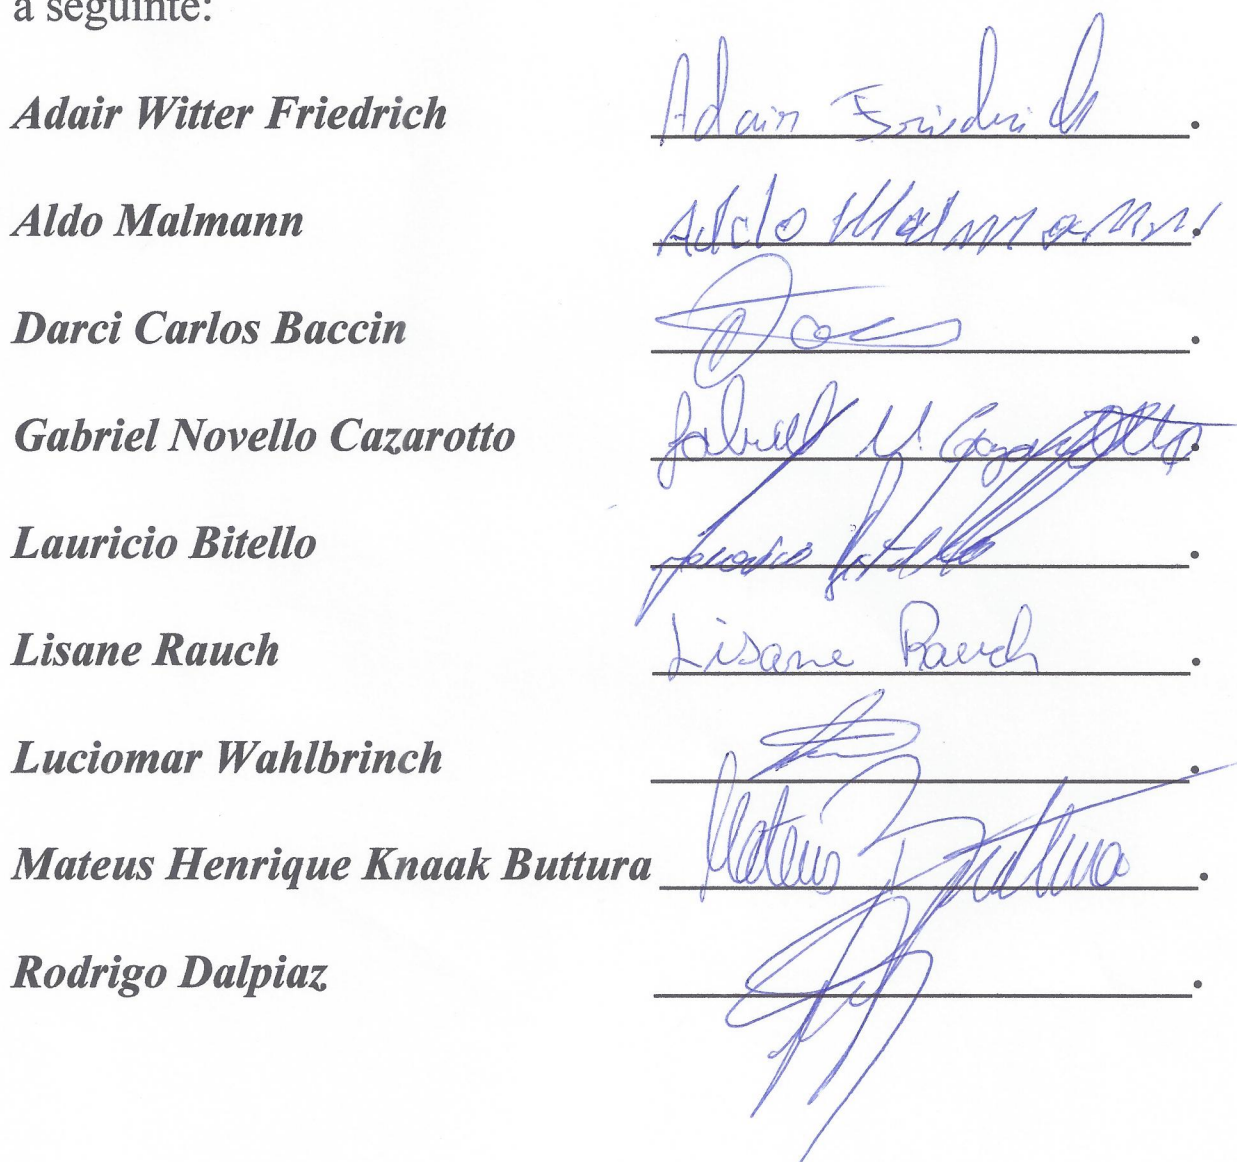 a seguinte:
Adair Witter Friedrich Adair Friedrich.
Aldo Malmann Aldo Malmann.
Darci Carlos Baccin .
Gabriel Novello Cazarotto Gabriel N. Cazarotto.
Lauricio Bitello Lauricio Bitello.
Lisane Rauch Lisane Rauch.
Luciomar Wahlbrinch .
Mateus Henrique Knaak Buttura Mateus Buttura.
Rodrigo Dalpiaz .